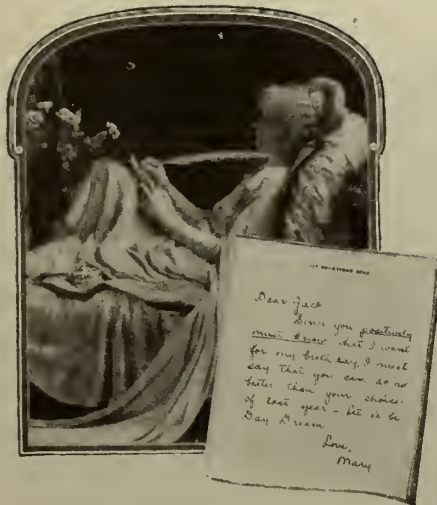 Dear Jack
Since you positively
must know what I want
for my birthday, I must
say that you can do no
better than your choice
of last year - let it be
Day Dream
Love,
Mary